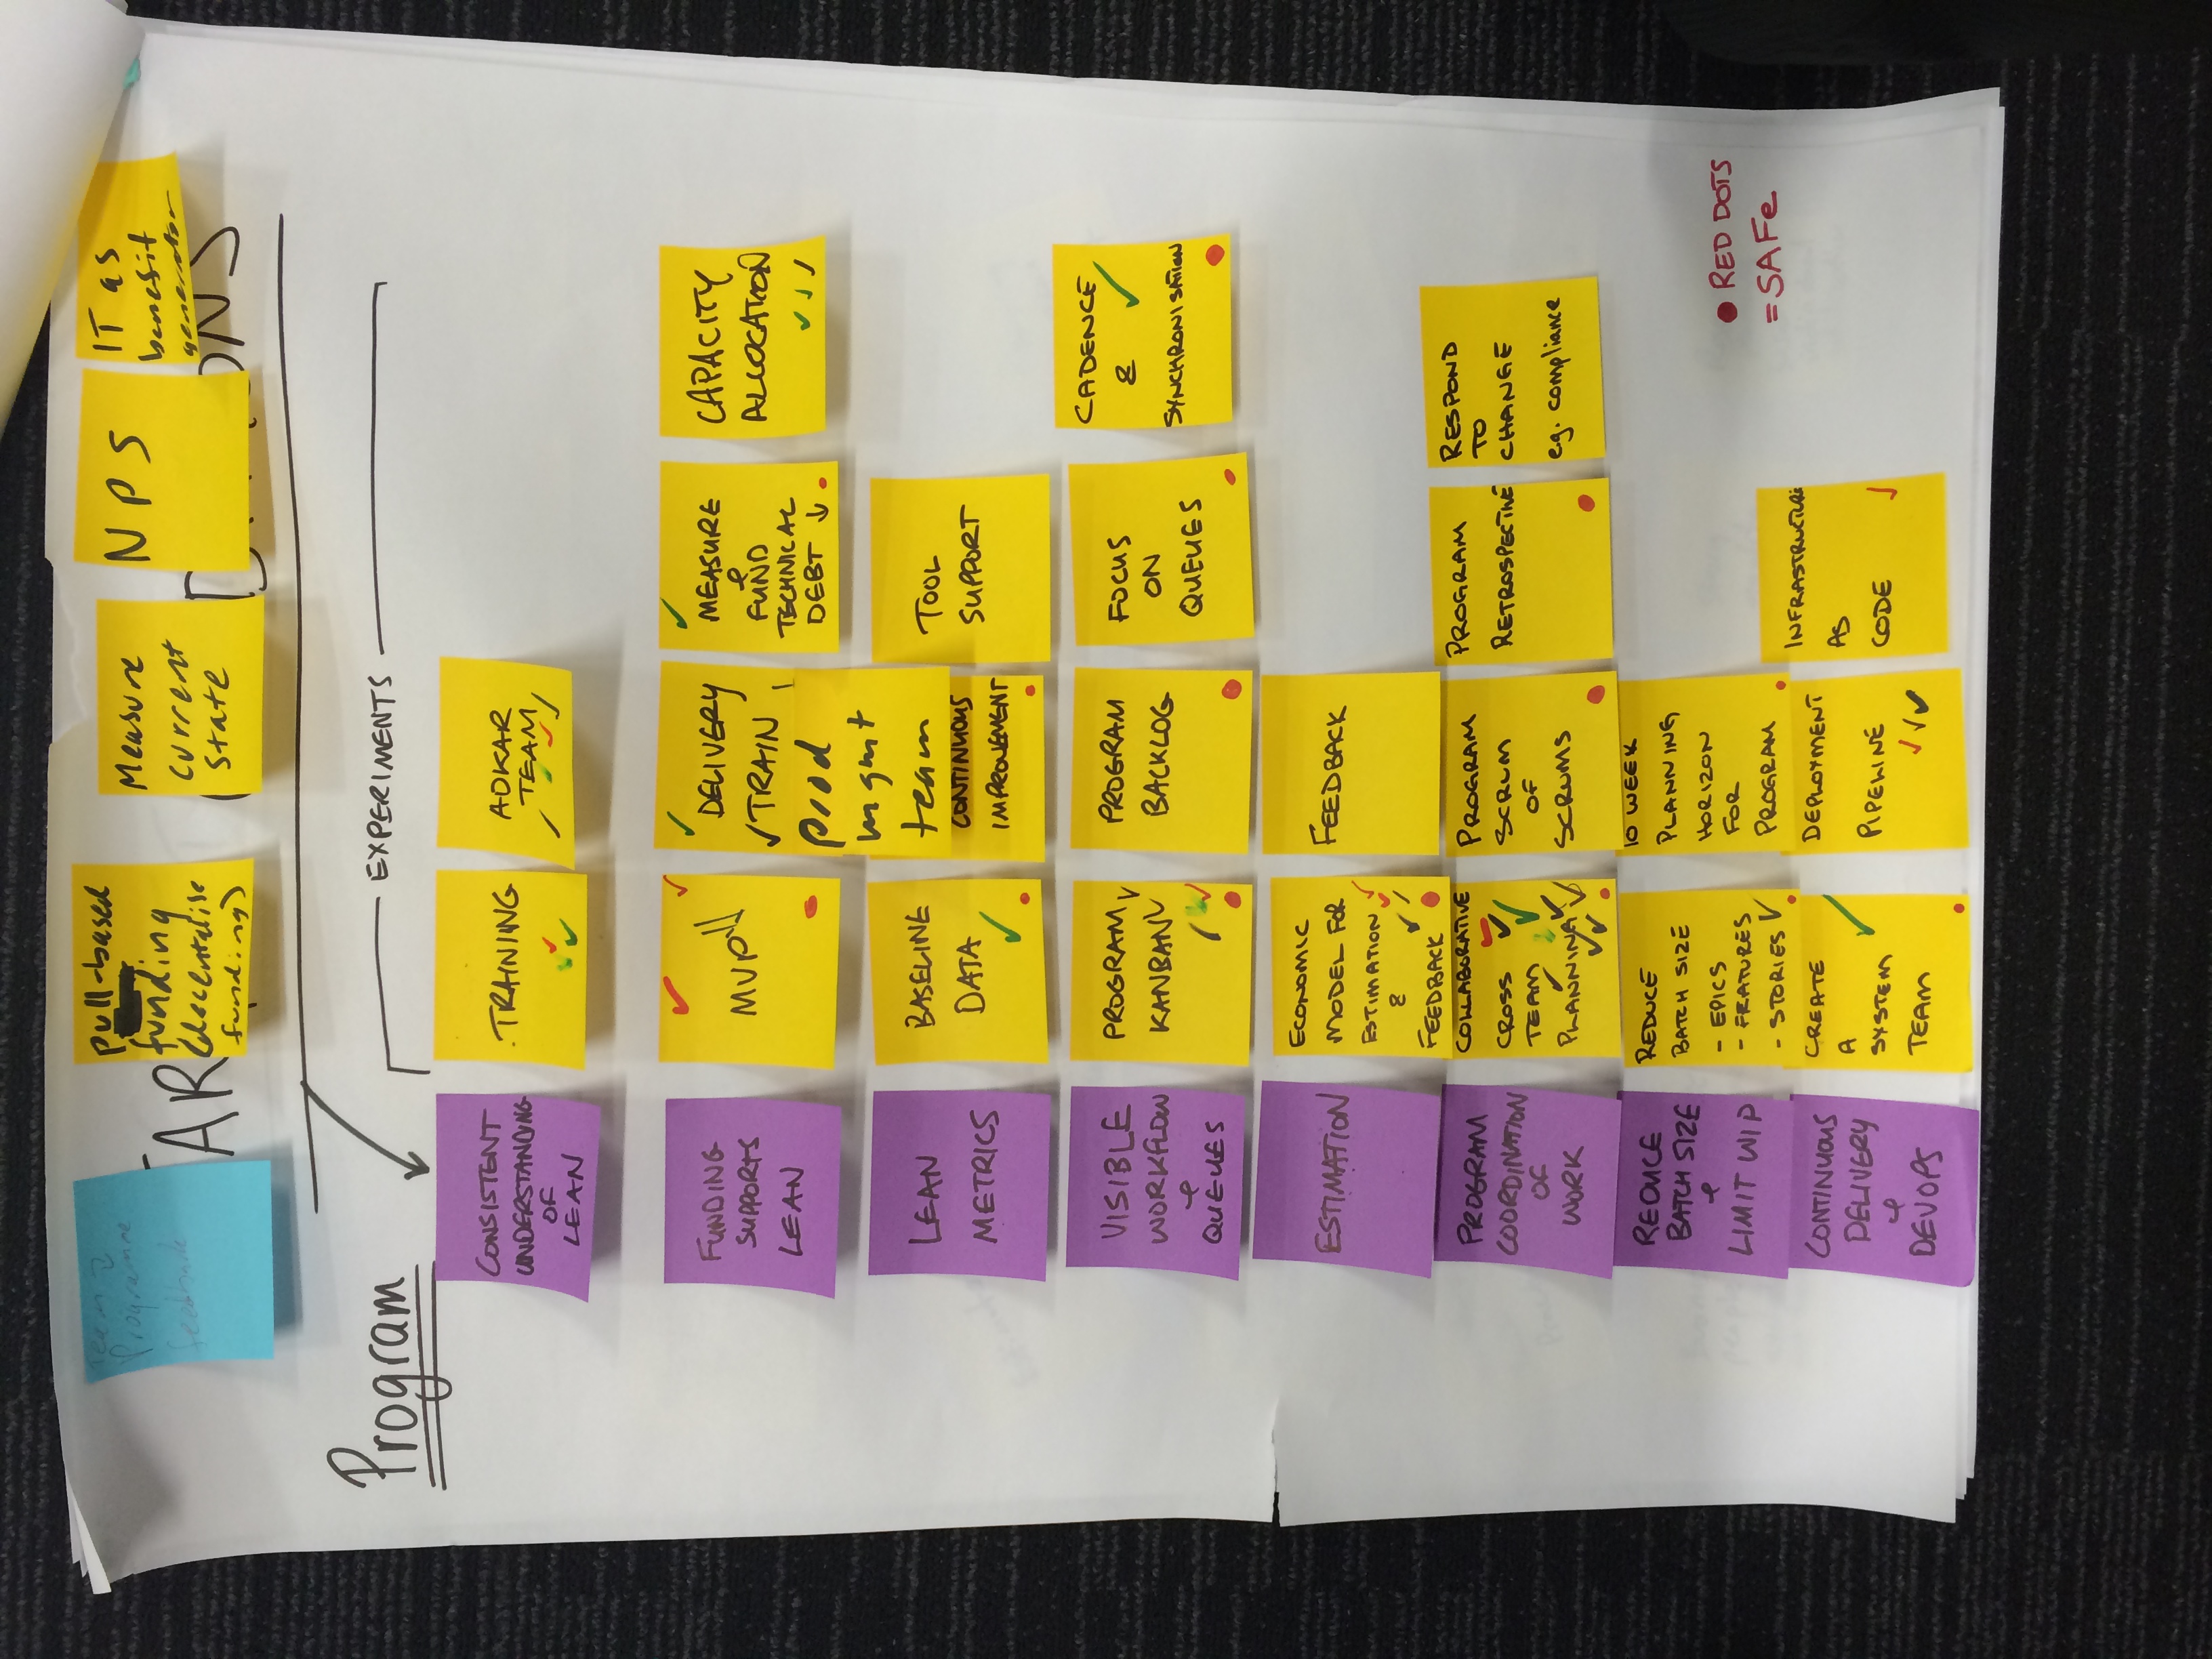 Team
Programme
feedback
pull-based
funding
(decentralise
funding)
Measure
current
state
NPS
IT as
benefit
generator
Program
EXPERIMENTS
CONSISTENT
UNDERSTANDING
OF
LEAN
TRAINING
ADKAR
TEAM
FUNDING
SUPPORTS
LEAN
MVP
DELIVERY
TRAIN
MEASURE
&
FUND
TECHNICAL
DEBT ↓
CAPACITY
ALLOCATION
prod
mgmt
team
LEAN
METRICS
BASELINE
DATA
CONTINUOUS
IMPROVEMENT
TOOL
SUPPORT
VISIBLE
WORKFLOW
&
QUEUES
PROGRAM
KANBAN
PROGRAM
BACKLOG
FOCUS
ON
QUEUES
CADENCE
&
SYNCHRONISATION
ESTIMATION
ECONOMIC
MODEL FOR
ESTIMATION
&
FEEDBACK
FEEDBACK
PROGRAM
COORDINATION
OF
WORK
COLLABORATIVE
CROSS
TEAM
PLANNING
PROGRAM
SCRUM
OF
SCRUMS
PROGRAM
RETROSPECTIVE
RESPOND
TO
CHANGE
e.g. compliance
REDUCE
BATCH SIZE
&
LIMIT WIP
REDUCE
BATCH SIZE
- EPICS
- FEATURES
- STORIES
10 WEEK
PLANNING
HORIZON
FOR
PROGRAM
RED DOTS
= SAFe
CONTINUOUS
DELIVERY
&
DEVOPS
CREATE
A
SYSTEM
TEAM
DEPLOYMENT
PIPELINE
INFRASTRUCTURE
AS
CODE